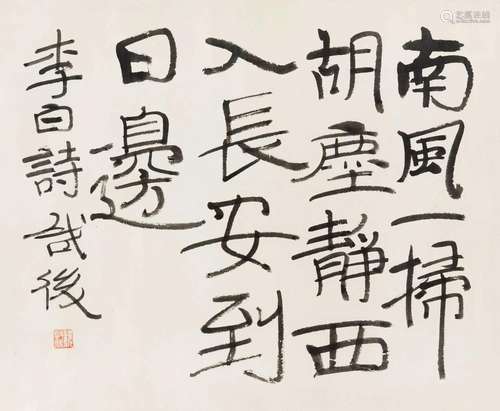 南風一掃
胡塵靜西
入長安到
日邊
李白詩 後